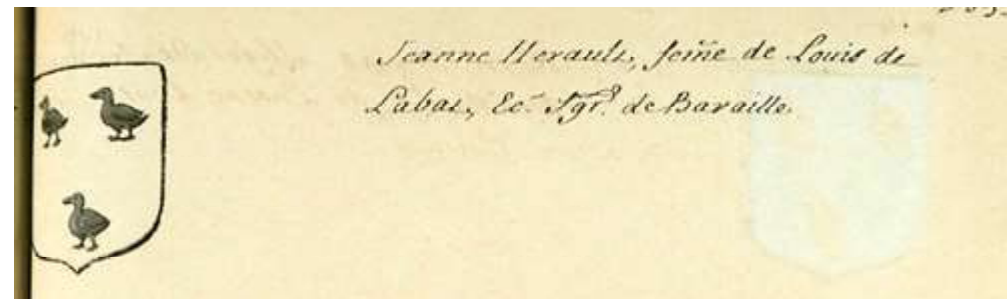 Jeanne Herault, femẽ de Louis de
Labat, Ec.r Sgr.r de Baraille.